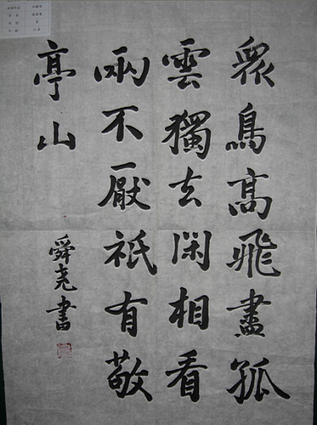 眾鳥高飛盡孤
雲獨去閑相看
兩不厭祇有敬
亭山
舜尧書